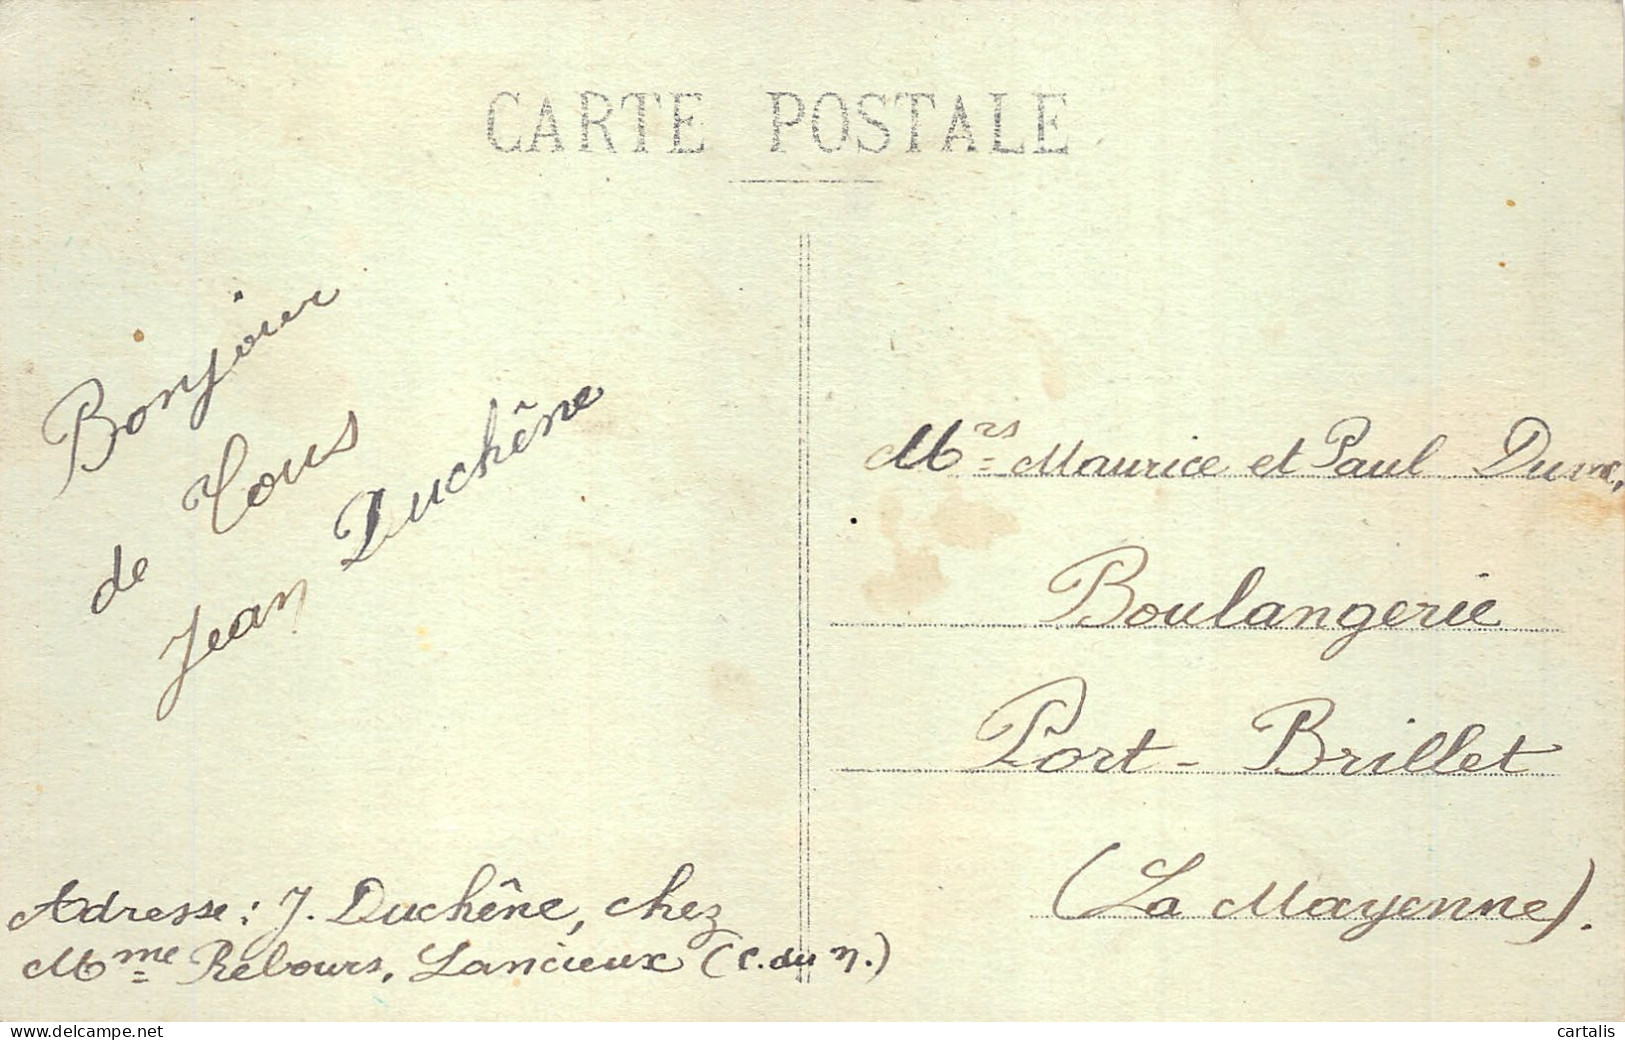 CARTE POSTALE
Bonjour
de Tous
Jean Duchêne
Adresse: J. Duchêne, chez
Mme Rebours, Lancieux (C. du N.)
Mrs Maurice et Paul
Boulangerie
Port-Brillet
(La Mayenne).
delcampe.net
cartalis